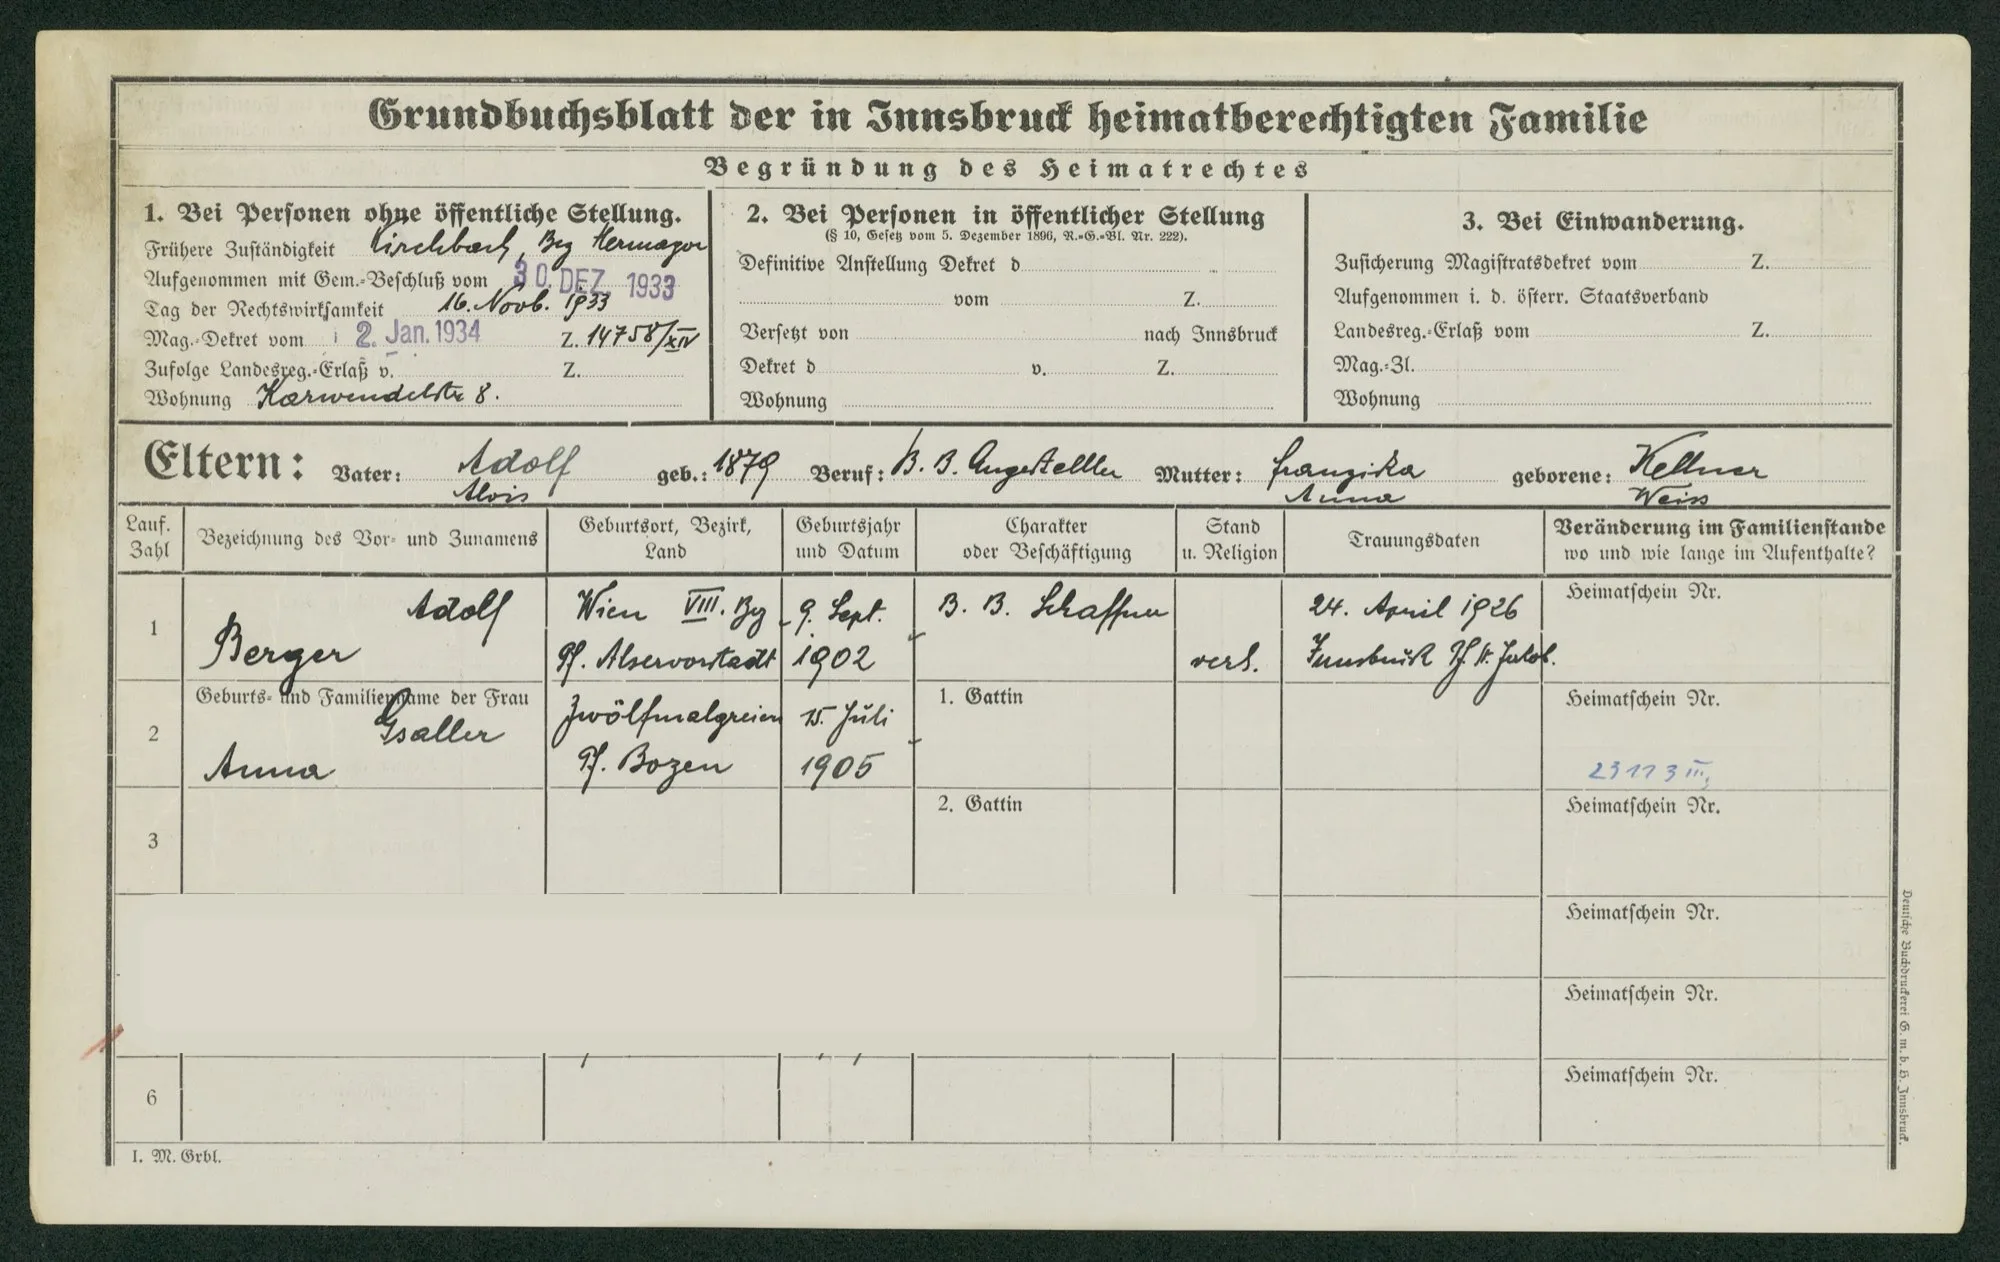 Grundbuchsblatt der in Innsbruck heimatberechtigten Familie
Begründung des Heimatrechtes
1. Bei Personen ohne öffentliche Stellung.
Frühere Zuständigkeit Kirchbach, Bez Hermagor
Aufgenommen mit Gem.-Beschluß vom 30. DEZ. 1933
Tag der Rechtswirksamkeit 16. Novb. 1933
Mag.-Dekret vom 2. Jan. 1934 Z. 14758/XIV
Zufolge Landesreg.-Erlaß v. Z.
Wohnung Karwendelstr 8.
2. Bei Personen in öffentlicher Stellung
(§ 10, Gesetz vom 5. Dezember 1896, R.-G.-Bl. Nr. 222).
Definitive Anstellung Dekret d
vom Z.
Versetzt von nach Innsbruck
Dekret d v. Z.
Wohnung
3. Bei Einwanderung.
Zusicherung Magistratsdekret vom Z.
Aufgenommen i. d. österr. Staatsverband
Landesreg.-Erlaß vom Z.
Mag.-Zl.
Wohnung
Eltern: Vater: Adolf geb.: 1879 Beruf: B. B. Angestellter Mutter: Franziska geborene: Kellner
Alois Anna Weiss
Lauf. Zahl
Bezeichnung des Vor- und Zunamens
Geburtsort, Bezirk, Land
Geburtsjahr und Datum
Charakter oder Beschäftigung
Stand u. Religion
Trauungsdaten
Veränderung im Familienstande
wo und wie lange im Aufenthalte?
1 Adolf Wien VIII. Bez 9. Sept. B. B. Schaffner 24. April 1926 Heimatschein Nr.
Berger Pf. Alservorstadt 1902 verh. Innsbruck Pf. St. Jakob.
Geburts- und Familienname der Frau
2 Gsaller Zwölfmalgreien 15. Juli 1. Gattin Heimatschein Nr.
Anna Pf. Bozen 1905 23113 III,
3 2. Gattin Heimatschein Nr.
Heimatschein Nr.
Heimatschein Nr.
6 Heimatschein Nr.
I. M. Grbl.
Deutsche Buchdruckerei G. m. b. H. Innsbruck.